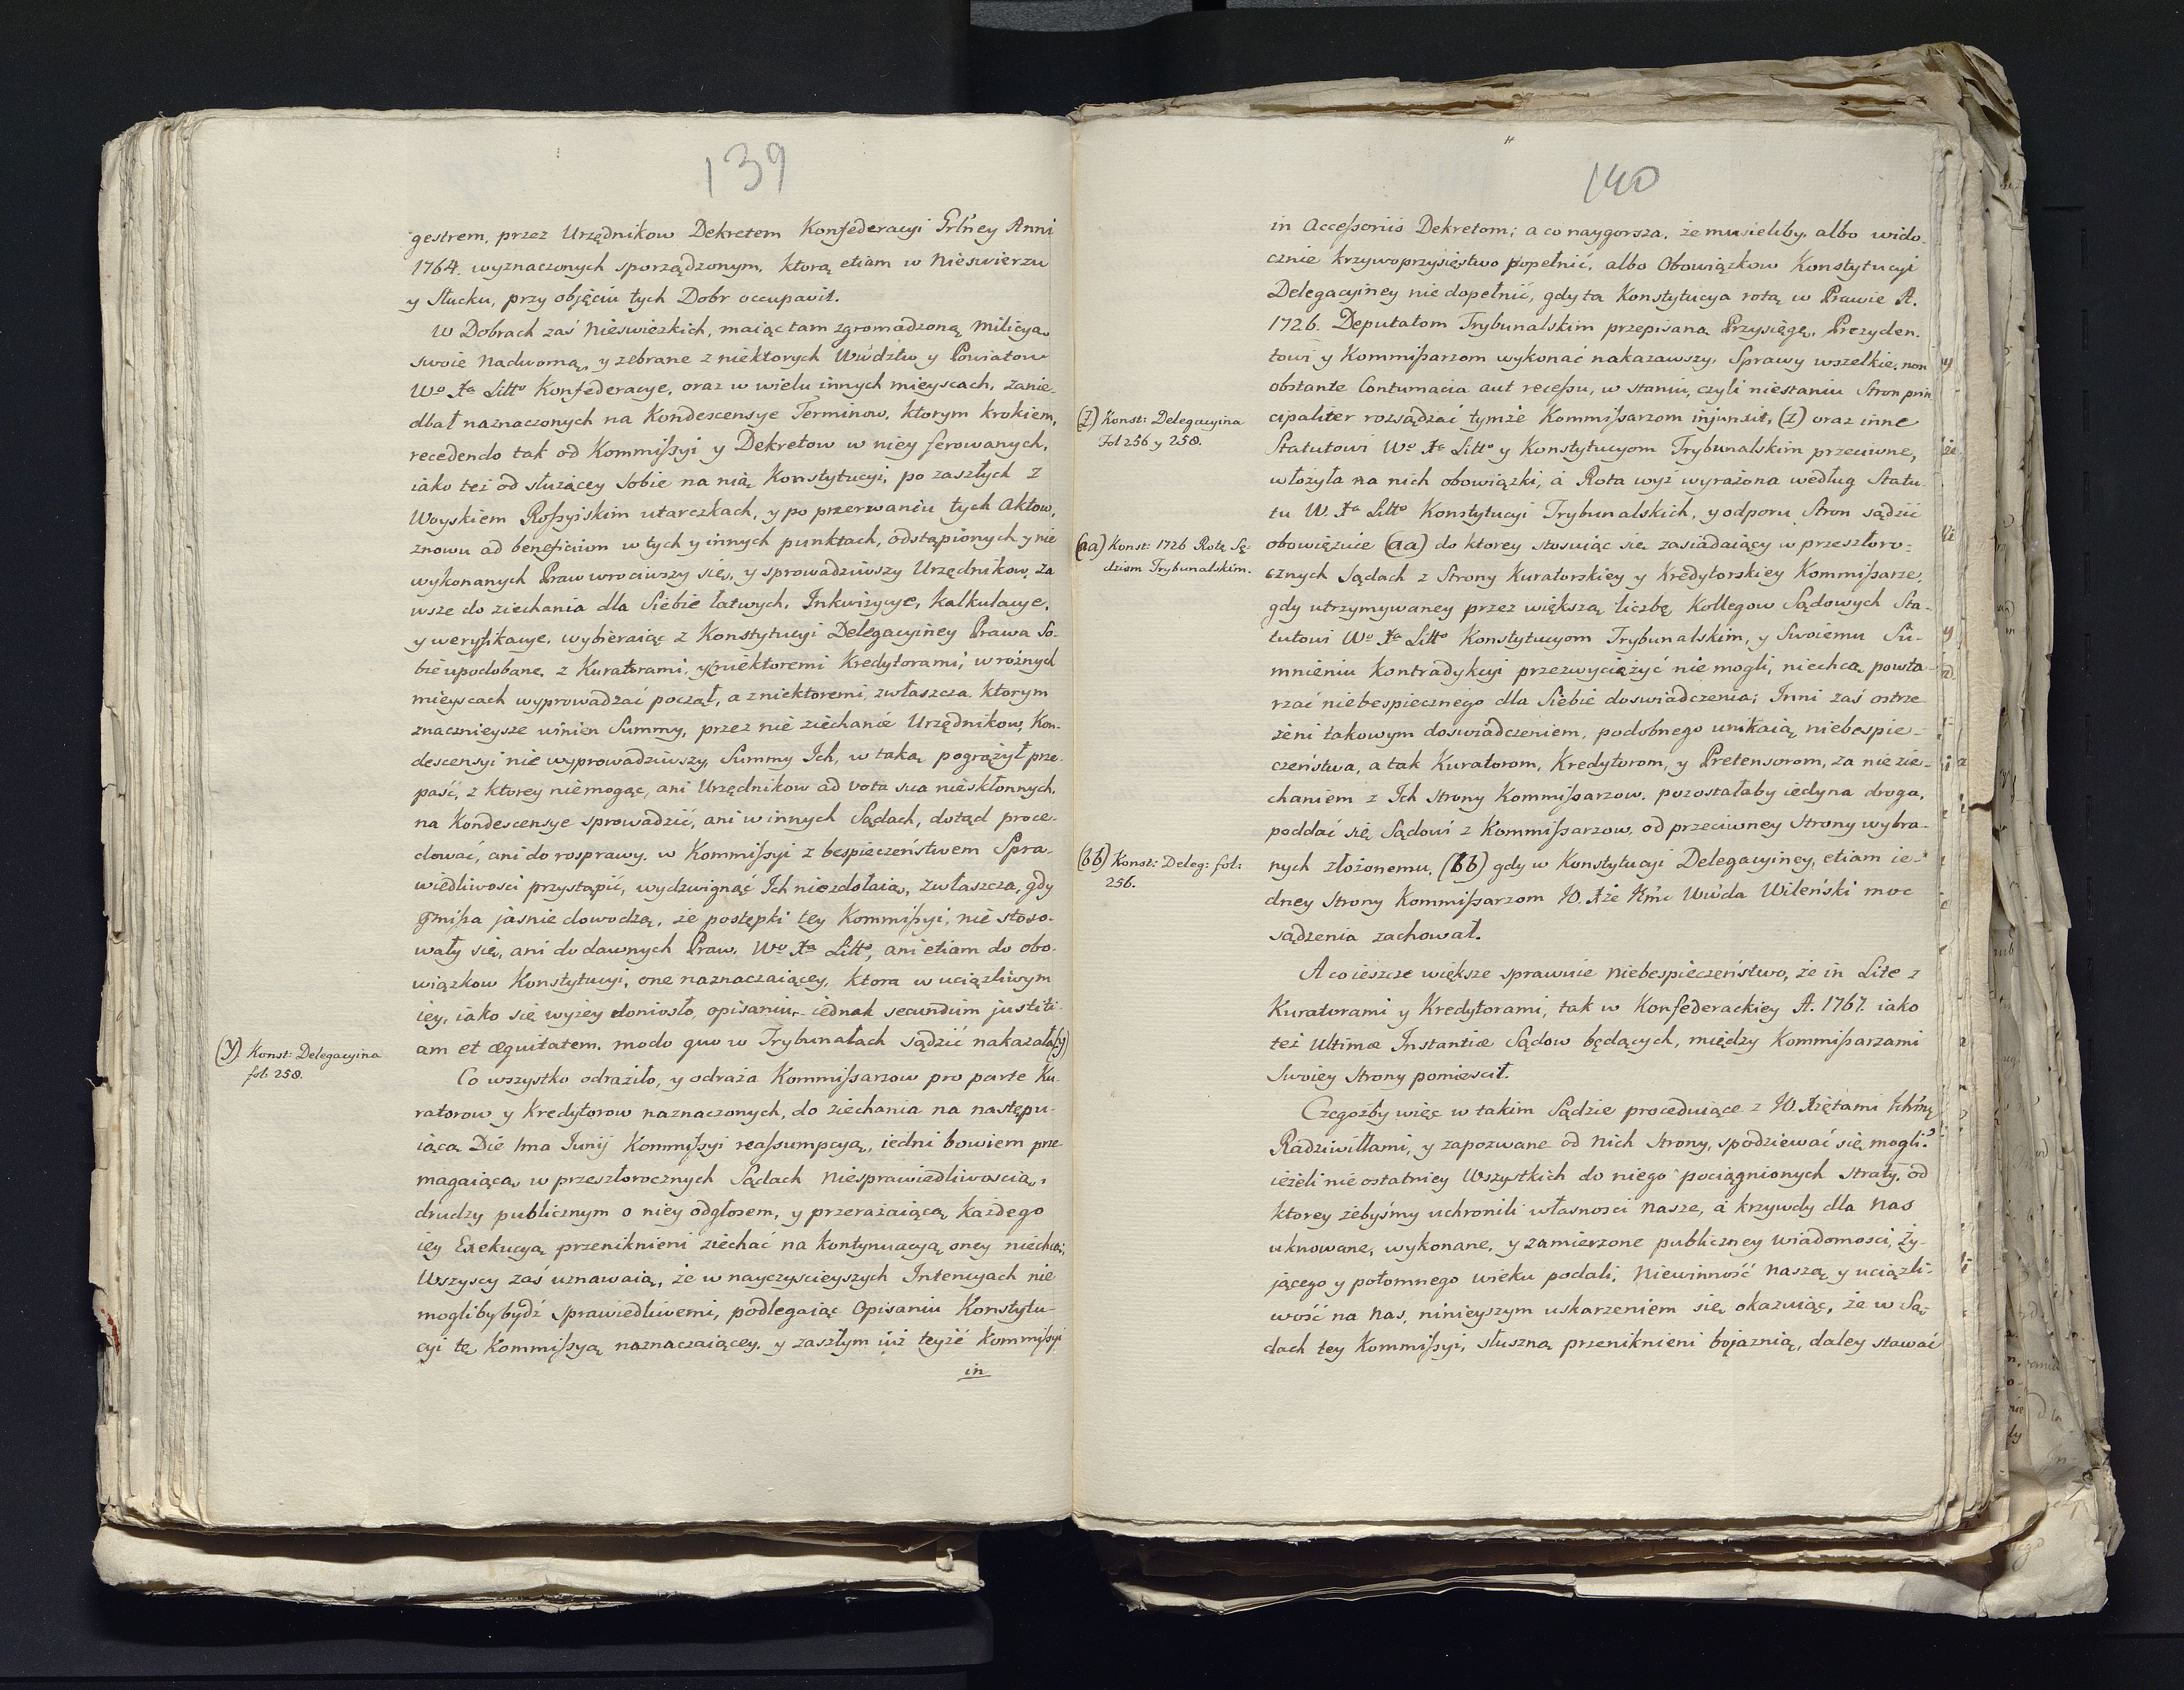 139
gestrem, przez Urzędnikow Dekretem Konfederacyi Grl'ney Anni
1764. wyznaczonych sporządzonym, ktorą etiam w Nieswierzu
y Słucku, przy objęciu tych Dobr occupavit.
W Dobrach zaś Nieswiezkich, maiąc tam zgromadzoną Milicyą
swoie Nadworną, y zebrane z niektorych Wwdztw y Powiatow
Wo Xa Litto Konfederacye, oraz w wielu innych mieyscach, zanie-
dbał naznaczonych na Kondescensye Terminow, ktorym krokiem,
recedendo tak od Kommissyi y Dekretow w niey ferowanych,
iako też od służącey Sobie na nią Konstytucyi, po zaszłych z
Woyskiem Rossyiskim utarczkach, y po przerwaniu tych Aktow,
znowu ad beneficium w tych y innych punktach, odstąpionych y nie
wykonanych Praw wrociwszy się, y sprowadziwszy Urzędnikow, za
wsze do ziechania dla Siebie łatwych, Inkwizycye, Kalkulacye,
y weryfikacye, wybieraiąc z Konstytucyi Delegacyiney Prawa So-
bie upodobane, z Kuratorami, y niektoremi Kredytorami, w rożnych
mieyscach wyprowadzać począł, a z niektoremi, zwłaszcza, ktorym
znacznieysze winien Summy, przez nie ziechanie Urzędnikow, Kon-
descensyi nie wyprowadziwszy, Summy Ich, w taką pogrążył prze-
paść, z ktorey niemogąc, ani Urzędnikow ad vota sua niesklonnych,
na Kondescensye sprowadzić, ani w innych Sądach, dotąd proce-
dować, ani do rosprawy, w Kommissyi z bespieczeństwem Spra-
wiedliwosci przystąpić, wydzwignąć Ich niezdołaią, zwłaszcza, gdy
pmissa jasnie dowodzą, że postępki tey Kommissyi, nie stoso-
wały się, ani do dawnych Praw, Wo Xa Litto, ani etiam do obo-
wiązkow Konstytucyi, one naznaczaiącey, ktora w uciązliwym
iey, iako się wyżey doniosło, opisaniu, iednak secundum justiti-
am et æquitatem, modo quo w Trybunałach sądzić nakazała (y)
(y) Konst: Delegacyina
fol. 258.
Co wszystko odraziło, y odraża Kommissarzow pro parte Ku-
ratorow y Kredytorow naznaczonych, do ziechania na następu-
iącą Die 1ma Junij Kommissyi reassumpcyą, iedni bowiem prze-
magaiącą w przeszłorocznych Sądach Niesprawiedliwoscią,
drudzy publicznym o niey odgłosem, y przerażaiącą każdego
iey Exekucyą przeniknieni ziechać na Kontynuacyą oney niechcą,
Wszyscy zaś uznawaią, że w nayczyscieyszych Intencyach nie
mogliby bydź sprawiedliwemi, podlegaiąc Opisaniu Konstytu-
cyi tę Kommissyą naznaczaiącey, y zaszłym iuż teyże Kommissyi
in
140
in Accessoriis Dekretom; a co naygorsza, że musieliby, albo wido-
cznie krzywoprzysięstwo popełnić, albo Obowiązkow Konstytucyi
Delegacyiney niedopełnić, gdy ta Konstytucya rotą w Prawie A.
1726. Deputatom Trybunalskim przepisaną Przysięgę, Prezyden-
towi y Kommissarzom wykonać nakazawszy, Sprawy wszelkie, non
obstante Contumacia aut recessu, w staniu, czyli niestaniu Stron prin
cipaliter rozsądzać tymże Kommissarzom injunxit, (z) oraz inne
(z) Konst: Delegacyina
Fol 256 y 258.
Statutowi Wo Xa Litto y Konstytucyom Trybunalskim przeciwne,
włożyła na nich obowiązki, a Rota wyż wyrażona według Statu-
tu W. Xa Litto Konstytucyi Trybunalskich, y odporu Stron sądzić
obowiązuie (aa) do ktorey stosuiąc się zasiadaiący w przeszłoro-
(aa) Konst: 1726 Rotą Sę-
dziom Trybunalskim.
cznych Sądach z Strony Kuratorskiey y Kredytorskiey Kommissarze,
gdy utrzymywaney przez większą liczbę Kollegow Sądowych Sta-
tutowi Wo Xa Litto Konstytucyom Trybunalskim, y Swoiemu Su-
mnieniu kontradykcyi przezwyciężyć nie mogli, niechcą powta-
rzać niebespiecznego dla Siebie doswiadczenia; Inni zaś ostrze
żeni takowym doswiadczeniem, podobnego unikaią niebespie-
czeństwa, a tak Kuratorom, Kredytorom, y Pretensorom, za nie zie-
chaniem z Ich Strony Kommissarzow, pozostałaby iedyna droga,
poddać się Sądowi z Kommissarzow, od przeciwney Strony wybra-
nych złożonemu, (bb) gdy w Konstytucyi Delegacyiney, etiam ie-
(bb) Konst: Deleg: fol:
256.
dney Strony Kommissarzom JO. Xże Jmc Wwda Wileński moc
sądzenia zachował.
A co ieszcze większe sprawuie niebespieczeństwo, że in Lite z
Kuratorami y Kredytorami, tak w Konfederackiey A. 1767. iako
też Ultimæ Instantiæ Sądow będących, między Kommissarzami
Swoiey Strony pomiescił.
Czegożby więc w takim Sądzie proceduiące z JO. Xiętami Ichmę
Radziwiłłami, y zapozwane od Nich Strony, spodziewać się mogli?
ieżeli nie ostatniey Wszystkich do niego pociągnionych straty, od
ktorey żebyśmy uchronili własnosci Nasze, a krzywdy dla Nas
uknowane, wykonane, y zamierzone publiczney wiadomosci, ży-
jącego y potomnego wieku podali, Niewinność Naszą y uciązli-
wość na Nas, ninieyszym uskarzeniem się okazuiąc, że w Są-
dach tey Kommissyi, słuszną przeniknieni bojaznią, daley stawać